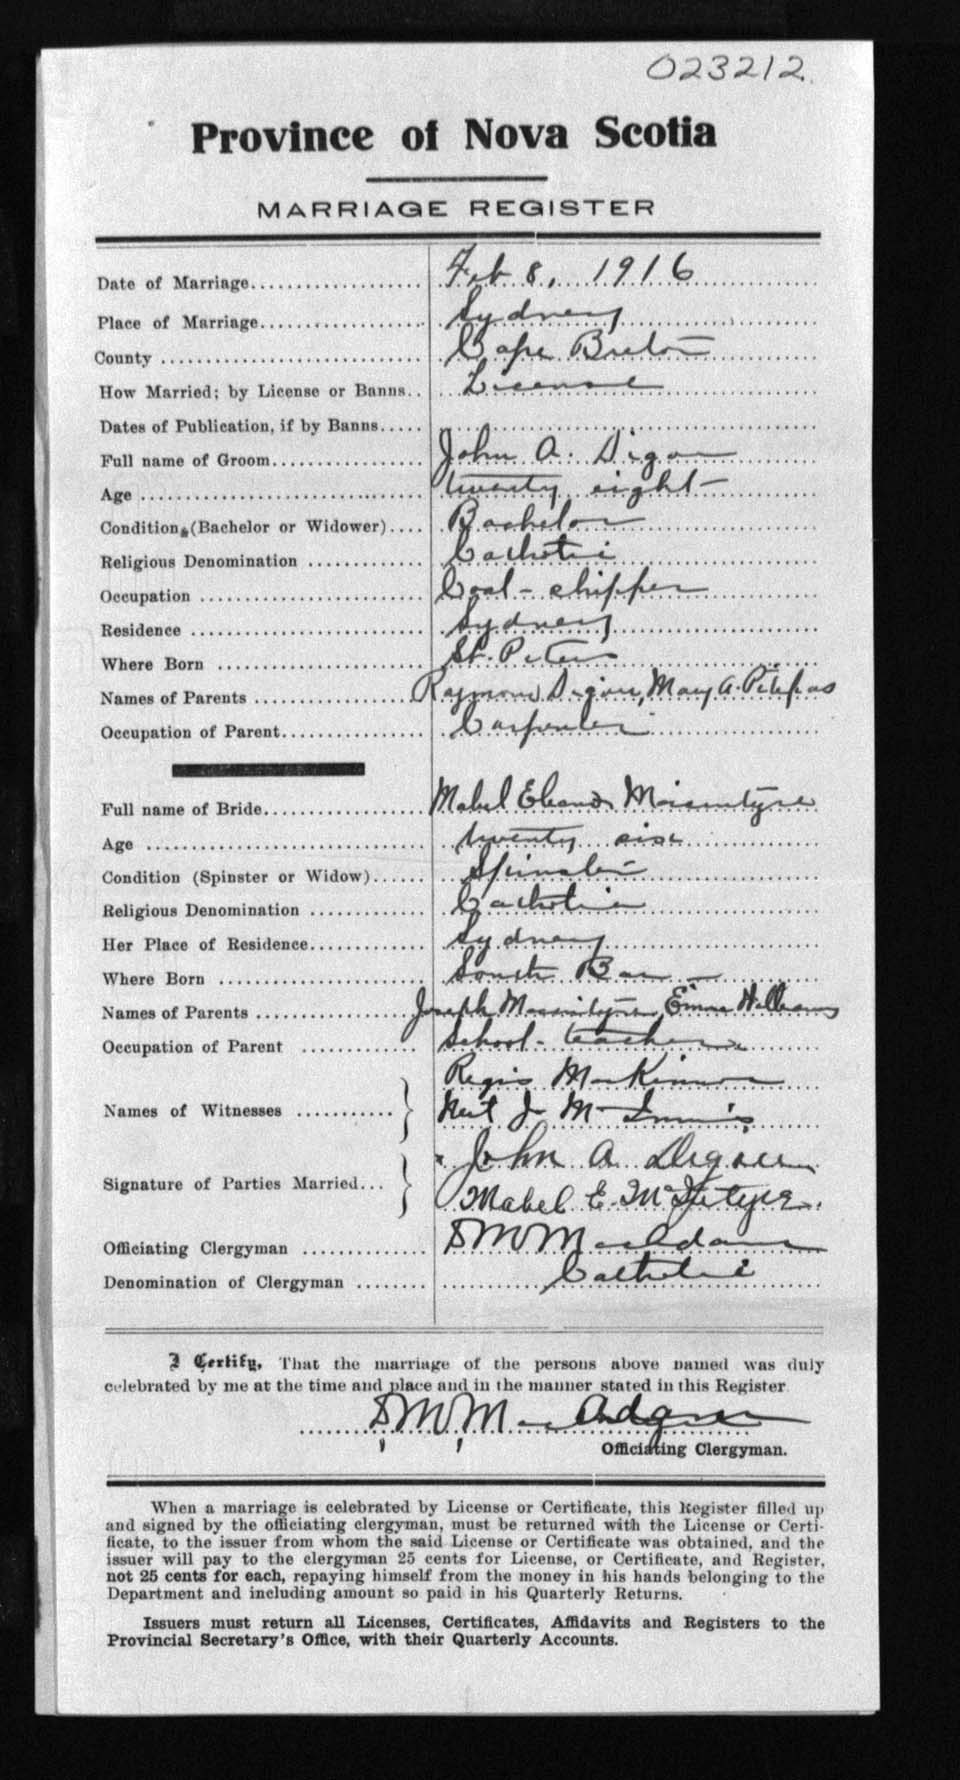 023212
Province of Nova Scotia
MARRIAGE REGISTER
Date of Marriage Feb 8, 1916
Place of Marriage Sydney
County Cape Breton
How Married; by License or Banns License
Dates of Publication, if by Banns
Full name of Groom John A. Digou
Age twenty eight
Condition (Bachelor or Widower) Bachelor
Religious Denomination Catholic
Occupation Coal-shipper
Residence Sydney
Where Born St. Peters
Names of Parents Raymond Digou, Mary A. Petitpas
Occupation of Parent Carpenter
Full name of Bride Mabel Eleanor Macintyre
Age twenty six
Condition (Spinster or Widow) Spinster
Religious Denomination Catholic
Her Place of Residence Sydney
Where Born South Bar
Names of Parents Joseph Macintyre Emma Williams
Occupation of Parent School-teacher
Regis MacKinnon
Names of Witnesses
J. McInnis
John A Digou
Signature of Parties Married
Mabel E. McIntyre.
Officiating Clergyman D M MacAdam
Denomination of Clergyman Catholic
I Certify, That the marriage of the persons above named was duly
celebrated by me at the time and place and in the manner stated in this Register
D. M. MacAdam
Officiating Clergyman.
When a marriage is celebrated by License or Certificate, this Register filled up
and signed by the officiating clergyman, must be returned with the License or Certi-
ficate, to the issuer from whom the said License or Certificate was obtained, and the
issuer will pay to the clergyman 25 cents for License, or Certificate, and Register,
not 25 cents for each, repaying himself from the money in his hands belonging to the
Department and including amount so paid in his Quarterly Returns.
Issuers must return all Licenses, Certificates, Affidavits and Registers to the
Provincial Secretary's Office, with their Quarterly Accounts.